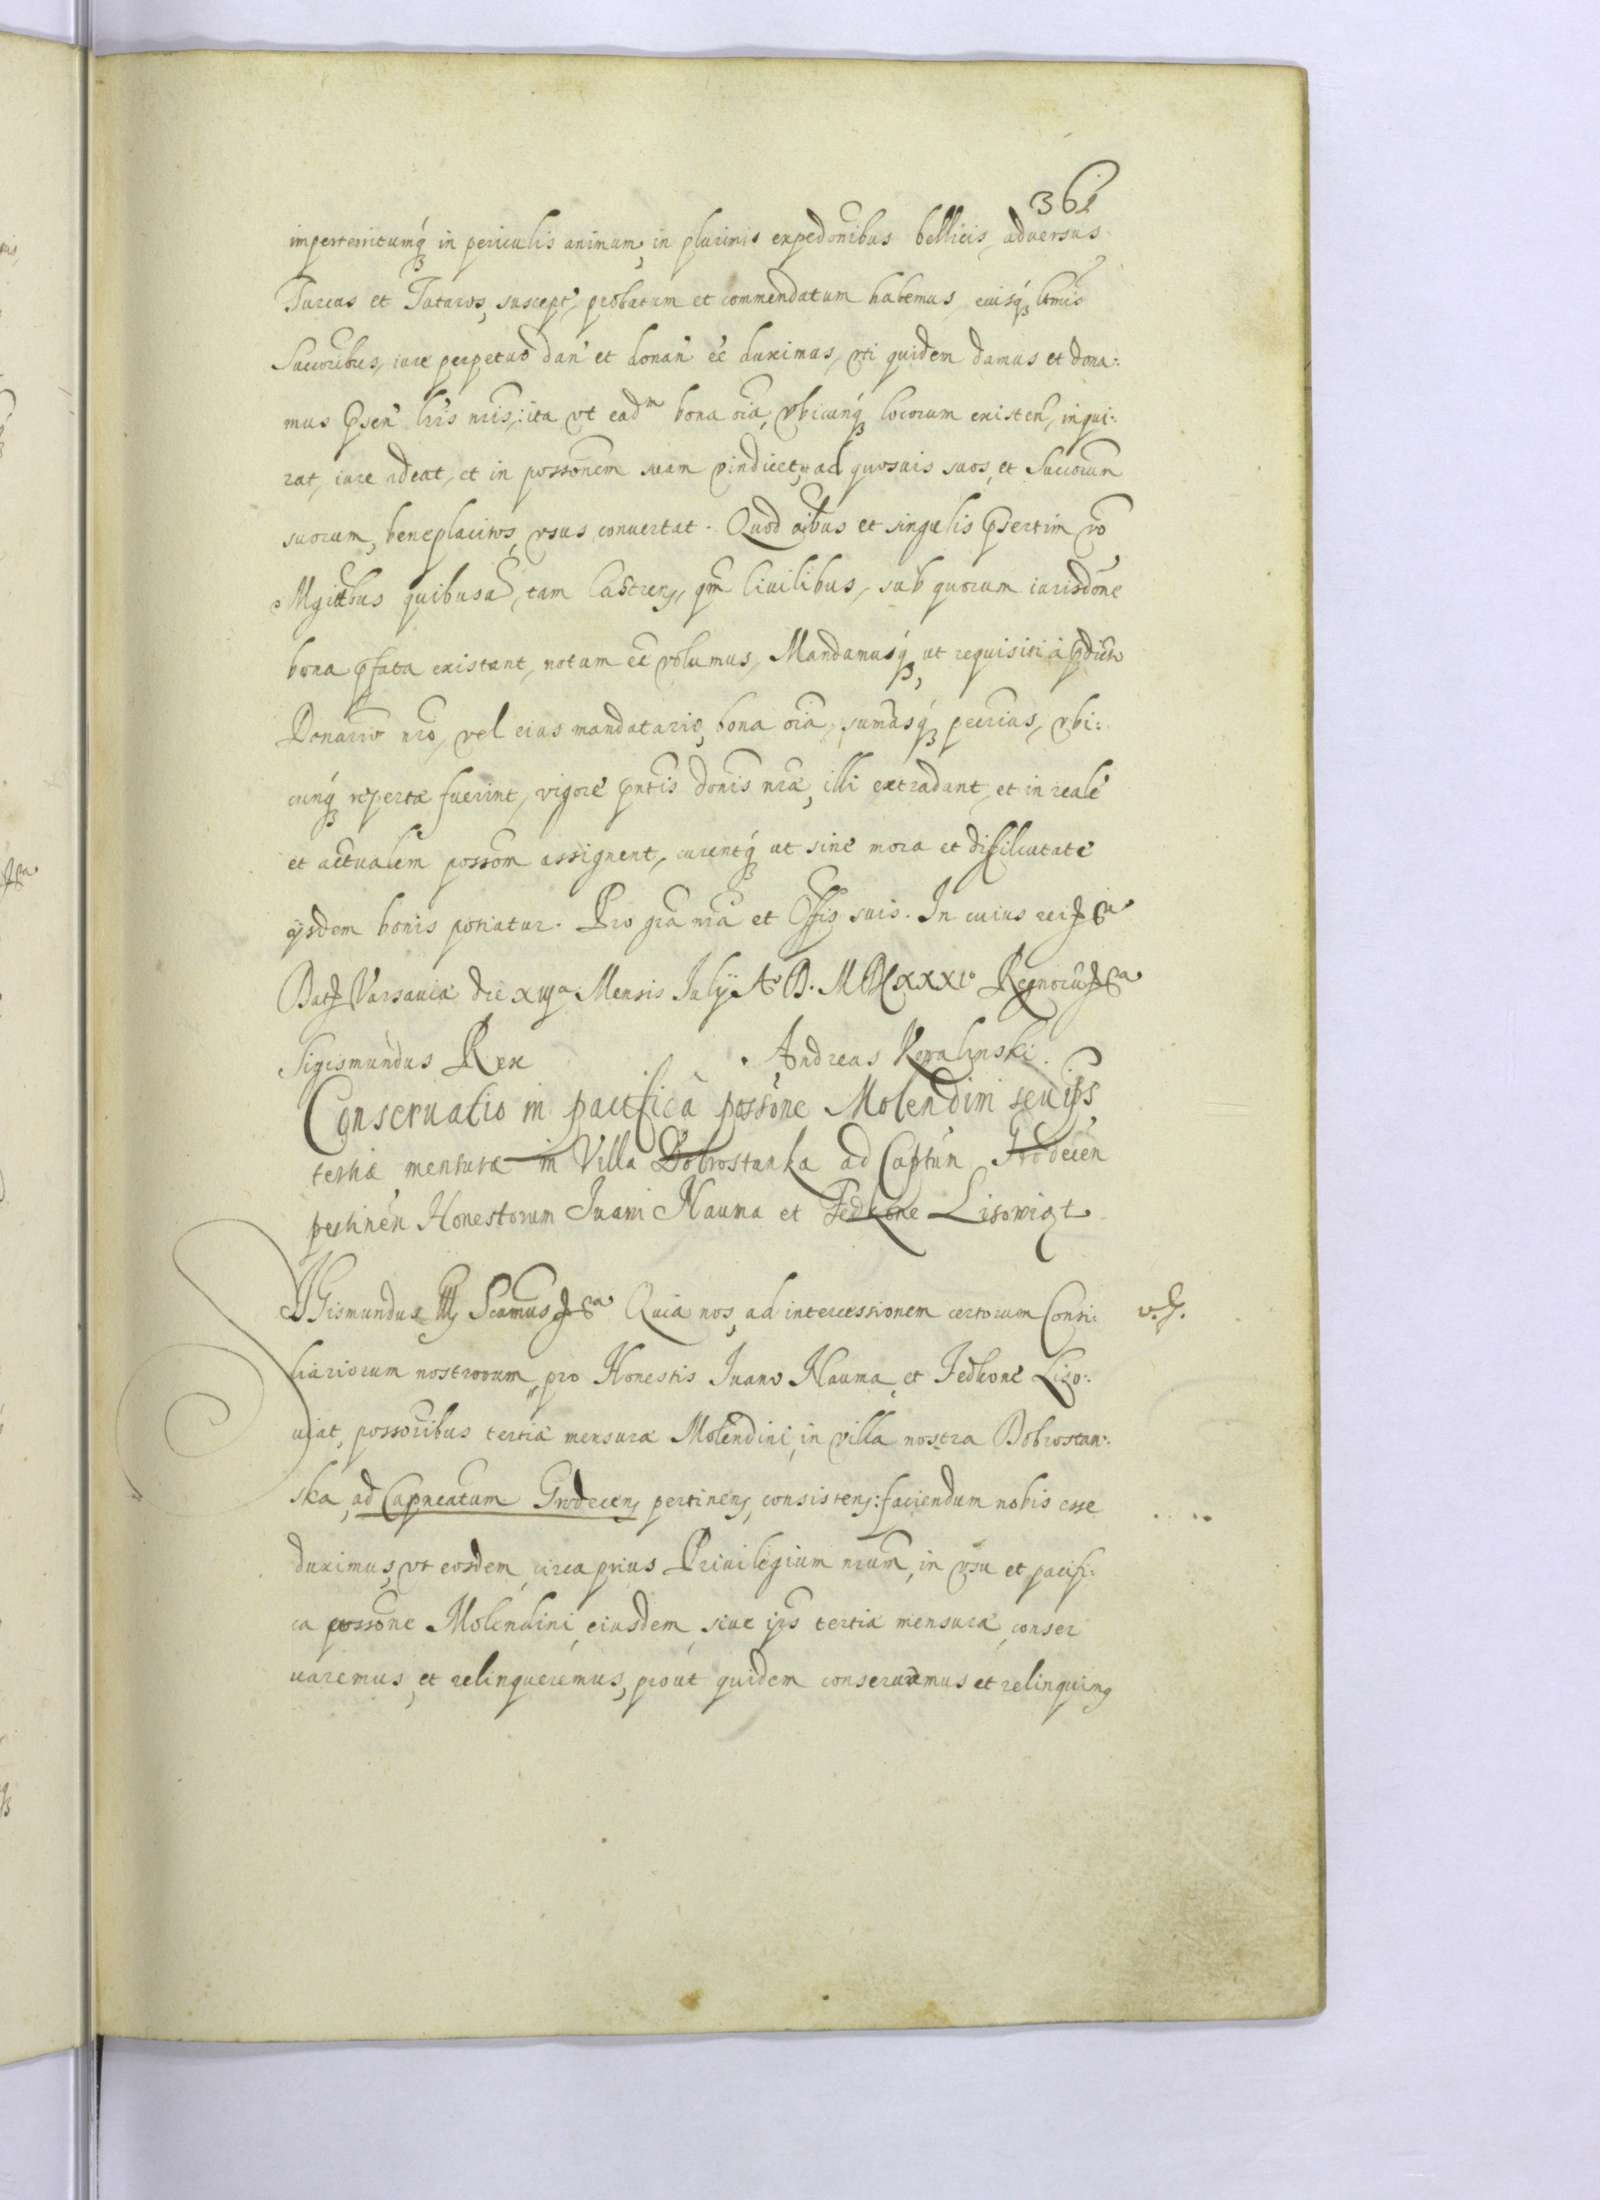 361
imperterritumq́ in periculis animum, in plurimis expedonibus bellicis, aduersus
Turcas et Tataros, suscept, probatum et commendatum habemus, eiusq́ ltmis
Succoribus, iure perpetuo dan et donan ee duximus, vti quidem damus et dona:
mus psen lris nris: ita vt ead^m bona oia, vbicunq́ locorum existen, inqui:
rat, iure adeat, et in possonem suam vindicet, ad quosuis suos, et Succorum
suorum, beneplacitos, vsus conuertat. Quod oibus et singulis psertim vo
Mgrtibus quibusuis, tam Castren, qm Ciuilibus, sub quorum iurisdone
bona pfata existant, notum ee volumus, Mandamusq́, ut requisiti a pdicto
Donario nro, vel eius mandatario, bona oia, sumasq́ pecrias, vbi:
cunq́ reperta fuerint, vigore pntis donis nrae, illi extradant, et in reale
et actualem possom assignent, curentq́ ut sine mora et dificultate
ijsdem bonis potiatur. Pro gra nra et Offis suis. In cuius rei &^a
Dat Varsauiae die XIIJ^a Mensis Julij A^o D. MDCXXXI^o Regnoru &^a
Sigismundus Rex Andreas Kowalinski.
Conseruatio in pacifica possone Molendini seu ips
tertiae mensurae in Villa Dobrostanka ad Captun Grodecen
pertinen Honestorum Juani Nauma et Fedkone Lisowiat
SIGismundus IIJ Scamus &^a Quia nos, ad intercessionem certorum Consi: v. G.
liariorum nostrorum, pro Honestis Juano Nauma, et Fedkone Liso:
uiat, possoribus tertiae mensurae Molendini, in villa nostra Dobrostan:
ska, ad Capneatum Grodecen, pertinen, consisten: faciendum nobis esse
duximus, vt eosdem, circa prius Priuilegium nrum, in vsu et pacifi:
ca possone Molendini, eiusdem, siue ips tertiae mensurae, conser
uaremus, et relinqueremus, prout quidem conseruamus et relinquimus